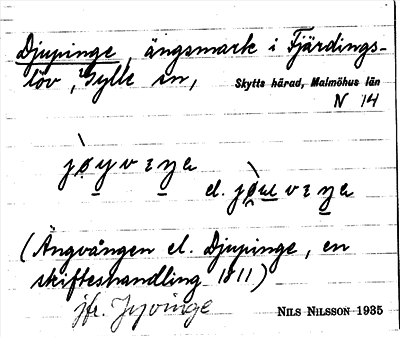 Djupinge, ängsmark i Fjärdings-
löv, Gylle sn, Skytts härad, Malmöhus län
N 14
jø̀yvɪŋa
el. jø̀uvɪŋa
(Ängvången el. Djupinge, en
skifteshandling 1811)
jfr. Jyvinge
NILS NILSSON 1935